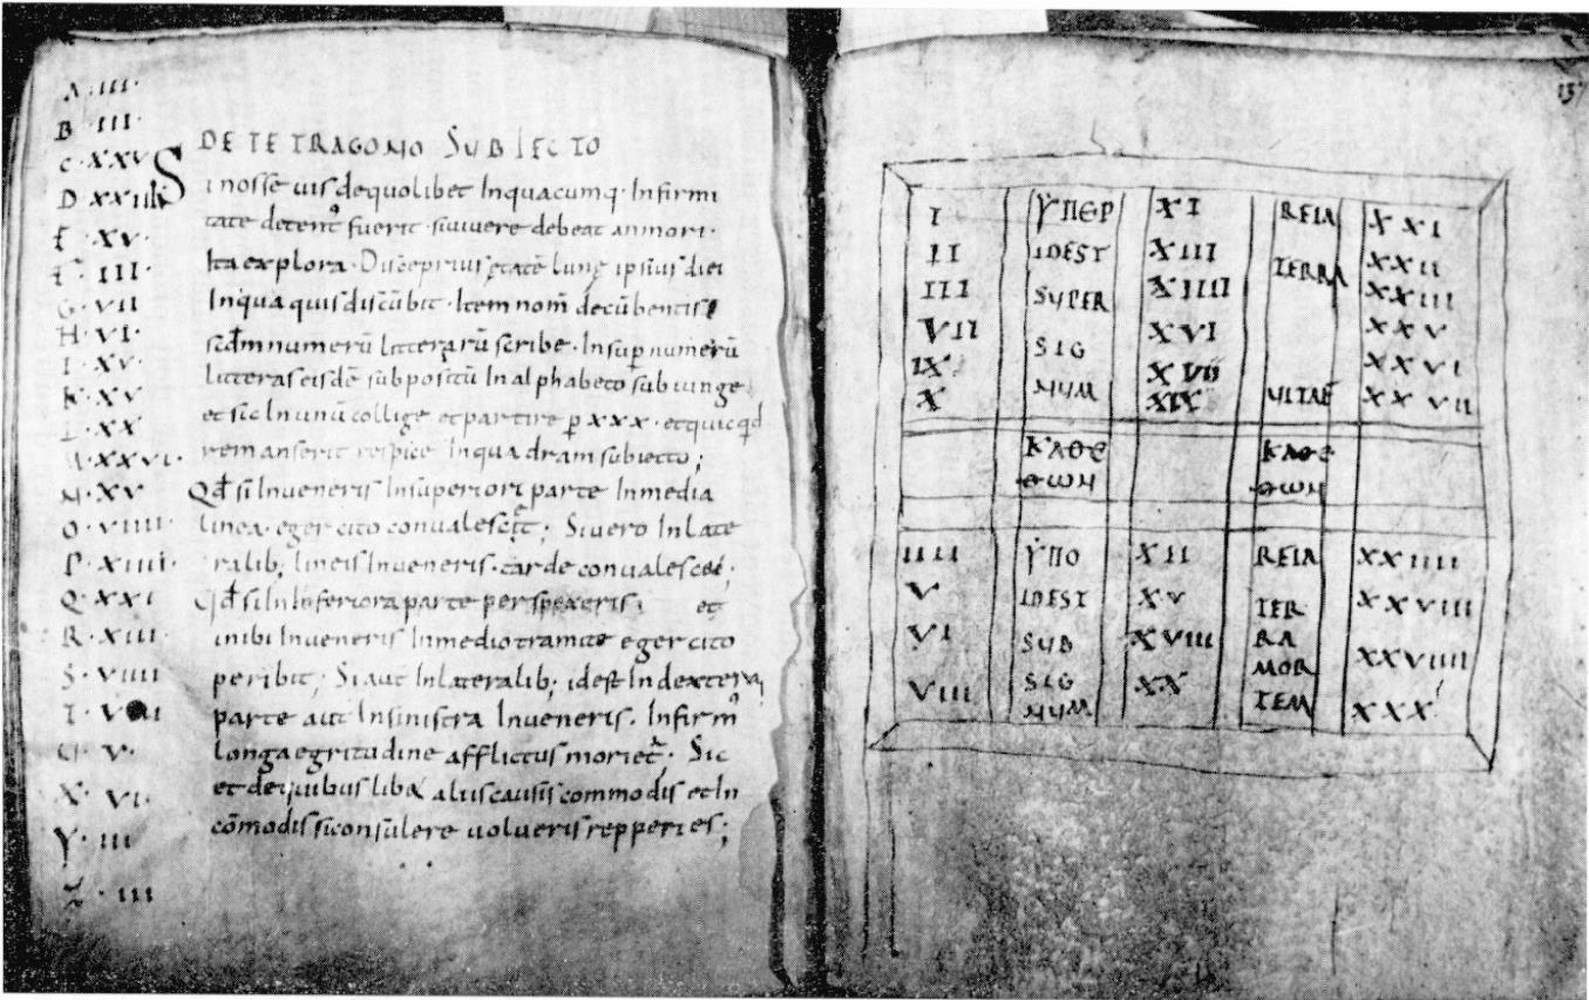 A · III ·
B · III ·
C · XXV
D XXIIII
E · XV ·
F · III ·
G · VII
H · VI ·
I · XV ·
K · XV
L · XX
M · XXVI ·
N · XV
O · VIIII ·
P · XIIII ·
Q · XXI
R · XIII ·
S · VIIII
T · V
V ·
X · VI ·
Y · III
Z · III
DE TETRAGONO SUBIECTO
Si nosse uis de quolibet Inquacumq · Infirmi
tate detent᾽ fuerit · si uiuere debeat an mori ·
Ita explora · prius ętatē lunę ipsius diei
In qua quis discūbit · Item nom̄ decūbentis
scdm numerū litterarū scribe · Insup numerū
litteras eisdē subpositū In alphabeto subiunge
et sic In unū collige et partire p XXX · et quicqd
remanserit respice In quadram subiecto ;
Qd si Inueneris In superiori parte In media
linea · eger cito conualescet ; Si uero In late
ralib; lineis Inueneris · tarde conualescet ·
Qd si In Inferiora parte perspexeris ; et
inibi Inueneris In medio tramite eger cito
peribit ; Si aut In lateralib; idest In dextera
parte aut In sinistra Inueneris · Infirm᾽
longa egritudine afflictus moriet · Sic
et de quibus lib& aliis causis commodis et In
cōmodis si consulere uolueris repperies ;
137
I ΥΠΕΡ XI REIA XXI
II IDEST XIII TERRA XXII
III SUPER XIIII XXIII
VII SIG XVI XXV
IX NUM XVII XXVI
X XIX UITAE XXVII
ΚΑΘΕ ΚΑΘΕ
ΘΩΝ ΘΩΝ
IIII ΥΠΟ XII REIA XXIIII
V IDEST XV TER XXVIII
VI SUB XVIII RA XXVIIII
VIII SIG XX MOR XXX
NUM TEM